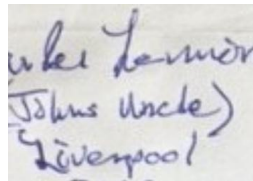 Lennon
(Johns Uncle)
Liverpool